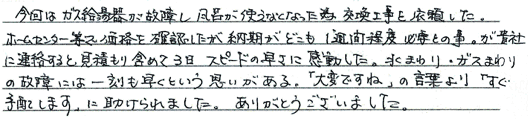 今回はガス給湯器が故障し風呂が使えなくなった為 交換工事を依頼した。
ホームセンター等で価格を確認したが納期がどこも1週間程度必要との事。が貴社
に連絡すると見積も含めて3日 スピードの早さに感動した。水まわり・ガスまわり
の故障には一刻も早くという思いがある。「大変ですね」の言葉より「すぐ
手配します」に助けられました。ありがとうございました。